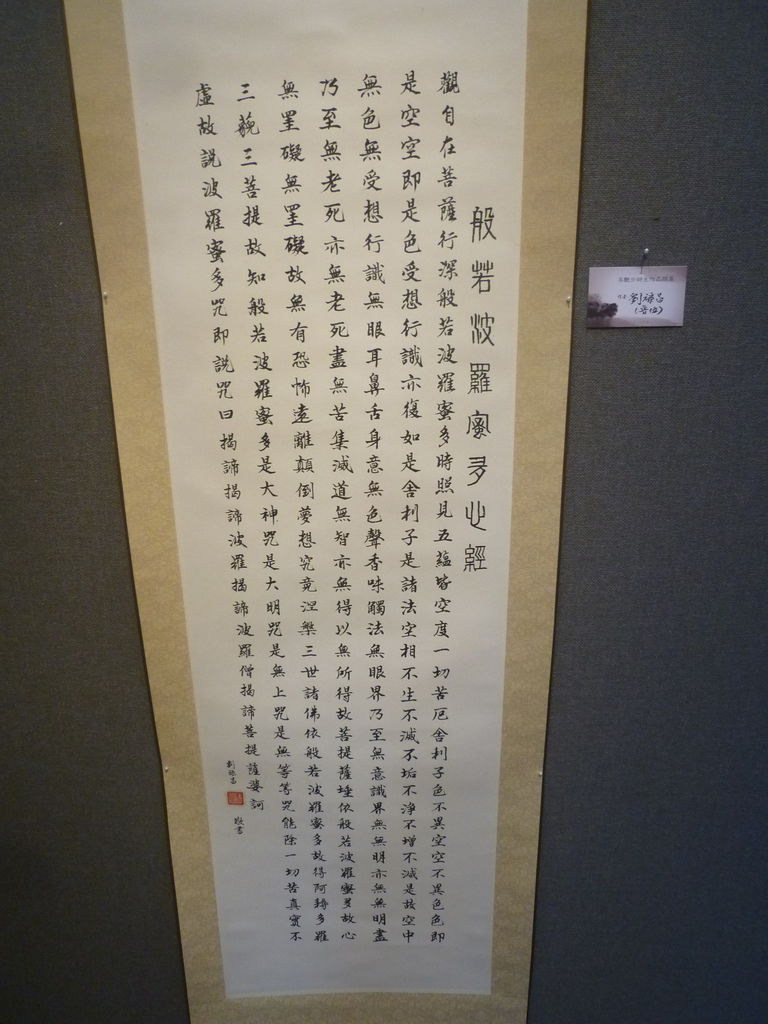 般若波羅蜜多心經
觀自在菩薩行深般若波羅蜜多時照見五蘊皆空度一切苦厄舍利子色不異空空不異色色即
是空空即是色受想行識亦復如是舍利子是諸法空相不生不滅不垢不淨不增不減是故空中
無色無受想行識無眼耳鼻舌身意無色聲香味觸法無眼界乃至無意識界無無明亦無無明盡
乃至無老死亦無老死盡無苦集滅道無智亦無得以無所得故菩提薩埵依般若波羅蜜多故心
無罣礙無罣礙故無有恐怖遠離顛倒夢想究竟涅槃三世諸佛依般若波羅蜜多故得阿耨多羅
三藐三菩提故知般若波羅蜜多是大神咒是大明咒是無上咒是無等等咒能除一切苦真實不
虛故說波羅蜜多咒即說咒曰揭諦揭諦波羅揭諦波羅僧揭諦菩提薩婆訶
敬書